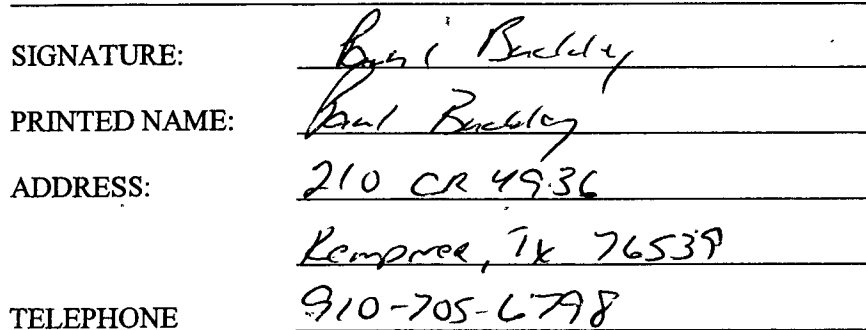 SIGNATURE: Paul Buckley
PRINTED NAME: Paul Buckley
ADDRESS: 210 CR 4936
Kempner, Tx 76539
TELEPHONE 910-705-6798